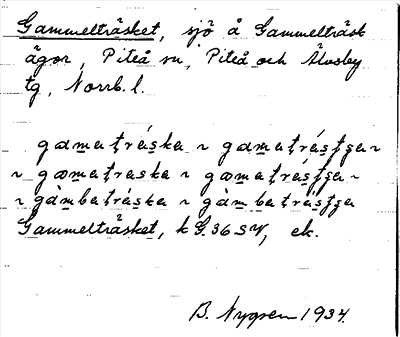 Gammelträsket, sjö å Gammelträsk
ägor, Piteå sn, Piteå och Älvsby
tg, Norrb. l.
gamatráska ~ gamatrástza ~
~ gamatraska ~ gamatrástza ~
~ gàmbatráska ~ gàmbatrástza
Gammelträsket, k G. 36 SV, ek.
B. Nygren 1934.